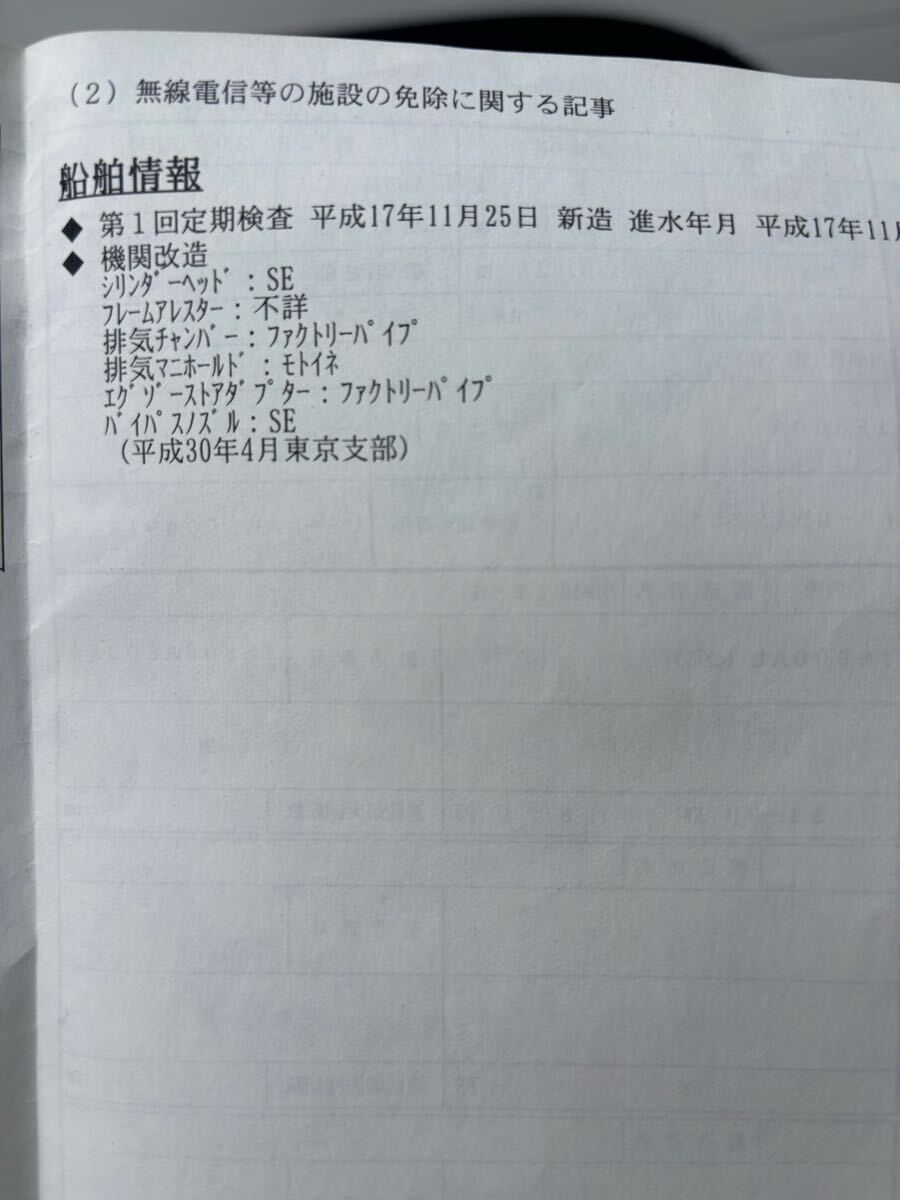 (2) 無線電信等の施設の免除に関する記事
船舶情報
◆ 第1回定期検査 平成17年11月25日 新造 進水年月 平成17年11
◆ 機関改造
ｼﾘﾝﾀﾞｰﾍｯﾄﾞ:SE
ﾌﾚｰﾑｱﾚｽﾀｰ:不詳
排気ﾁｬﾝﾊﾞｰ:ﾌｧｸﾄﾘｰﾊﾟｲﾌﾟ
排気ﾏﾆﾎｰﾙﾄﾞ:ﾓﾄｲﾈ
ｴｸﾞｿﾞｰｽﾄｱﾀﾞﾌﾟﾀｰ:ﾌｧｸﾄﾘｰﾊﾟｲﾌﾟ
ﾊﾞｲﾊﾟｽﾉｽﾞﾙ:SE
(平成30年4月東京支部)